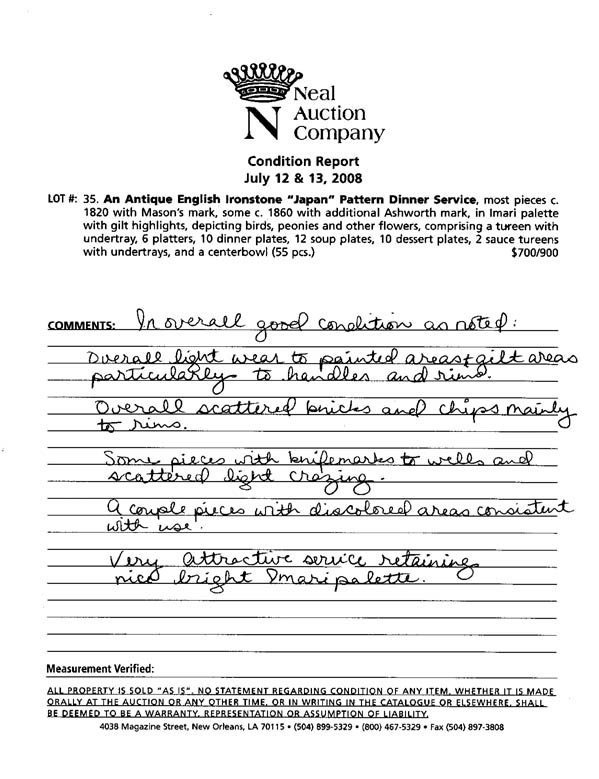 Neal
N Auction
Company
Condition Report
July 12 & 13, 2008
LOT #: 35. An Antique English Ironstone "Japan" Pattern Dinner Service, most pieces c.
1820 with Mason's mark, some c. 1860 with additional Ashworth mark, in Imari palette
with gilt highlights, depicting birds, peonies and other flowers, comprising a tureen with
undertray, 6 platters, 10 dinner plates, 12 soup plates, 10 dessert plates, 2 sauce tureens
with undertrays, and a centerbowl (55 pcs.) $700/900
COMMENTS: In overall good condition as noted:
Overall light wear to painted areas + gilt areas
particularly to handles and rims.
Overall scattered knicks and chips mainly
to rims.
Some pieces with knifemarks to wells and
scattered light crazing.
A couple pieces with discolored areas consistent
with use.
Very attractive service retaining
nice bright Imari palette.
Measurement Verified:
ALL PROPERTY IS SOLD "AS IS". NO STATEMENT REGARDING CONDITION OF ANY ITEM, WHETHER IT IS MADE
ORALLY AT THE AUCTION OR ANY OTHER TIME, OR IN WRITING IN THE CATALOGUE OR ELSEWHERE, SHALL
BE DEEMED TO BE A WARRANTY, REPRESENTATION OR ASSUMPTION OF LIABILITY.
4038 Magazine Street, New Orleans, LA 70115 • (504) 899-5329 • (800) 467-5329 • Fax (504) 897-3808